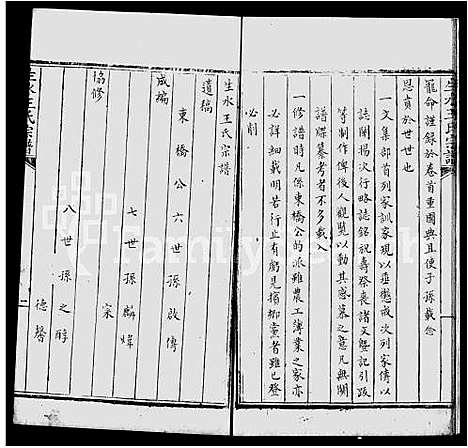 寵命謹錄於卷首重國典且使子孫載念
恩賁於世世也
一文集部首列家訓家規以垂懲戒次列家傳以
誌闡揚次行略誌銘祝壽祭喪諸文槩記引跋
等制作俾後人觀覽以動其感慕之意凡無關
譜牒纂考者不多載入
一修譜時凡係東橋公的派雖農工薄業之家亦
必詳細載明若行止有虧見擯鄉黨者雖已登
必削
生水王氏宗譜
遺稿
東橋公六世孫啟傳
咸編
七世孫麟煒
宋
協修
八世孫之醇
德馨
生水王氏宗譜
二